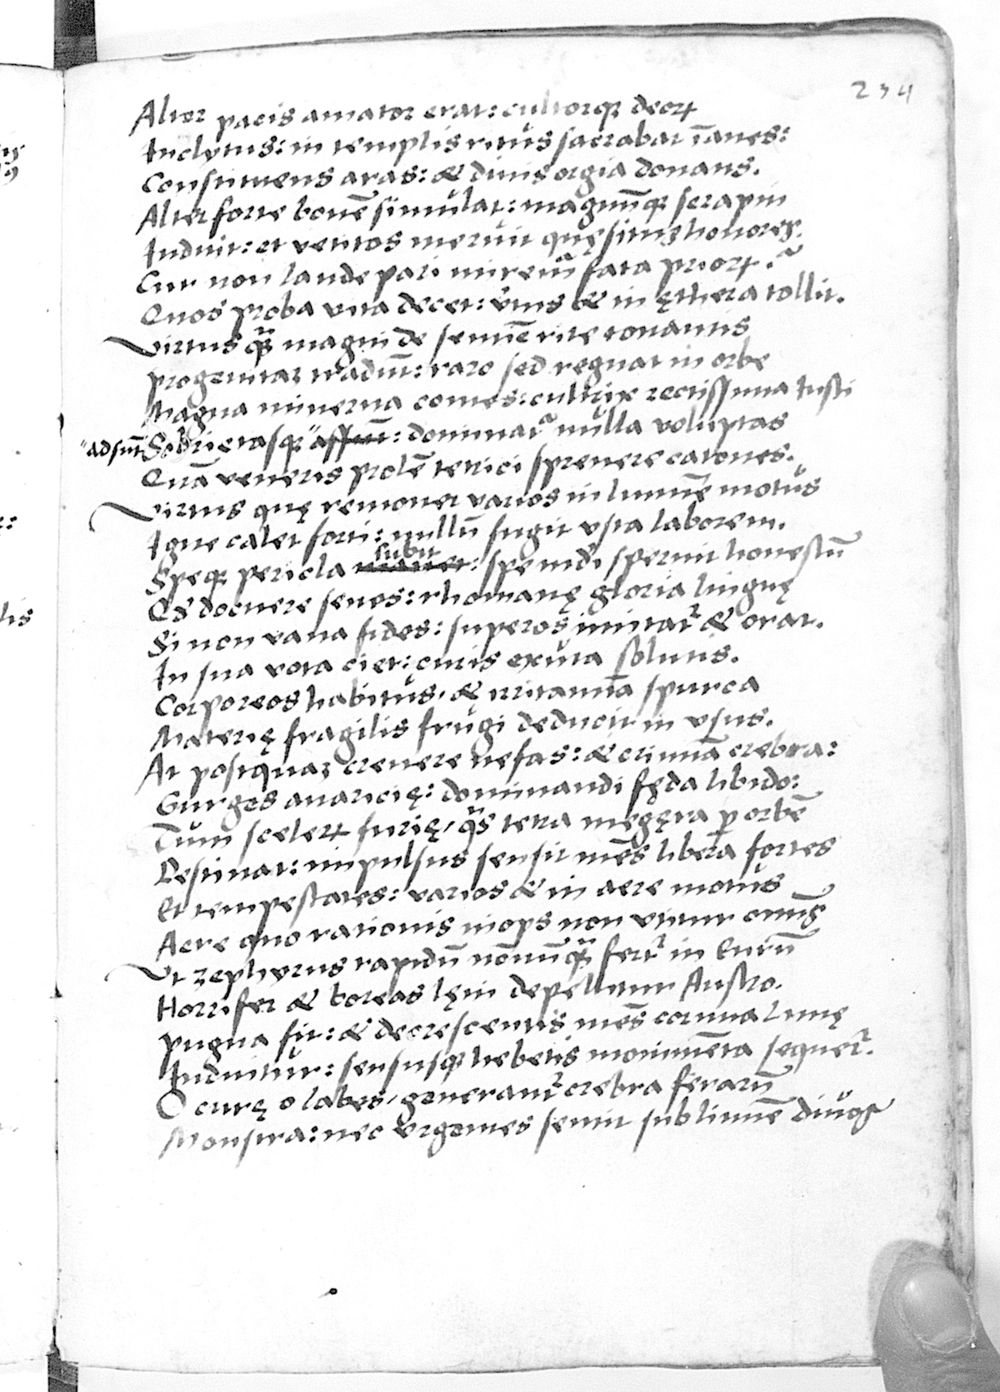 234
Alter pacis amator erat: cultorqꝫ deoꝝ
Inclytus: in templis ritus sacrabat inanes:
Constituens aras: & diuis orgia donans.
Alter forte bouē simulat: magnūqꝫ serapin
Induit: et vetitos meruit quęsitus honores.
Cur non laude pari miremur fata prioꝝ?
Quos proba vita decet: & in ęthera tollit.
Virtus magni de semine rite tonantis
progenitaꝫ tradunt: raro sed regnat in orbe
Magna minerua comes: cultrix rectissima Iusti
"adsunt Sobrietasqꝫ "assunt: dominatur nulla voluptas
Quā veneris prolē tetrici spreuere catones.
Virtus quę remouet varios in lumine motus
Igne calet forti: nullū fugit vsta laborem.
Speqꝫ pericla subit: spernit honestū
Qd docuere senes: rhomanę gloria linguę
Si non vana fides: superos imitatur & orat.
In sua vota ciet: curis exuta solutis.
Corporeos habitus, & irritamīa spurca
Materię fragilis frugi deducit in vsus.
At postquaꝫ creuere nefas: & crimina crebra:
Gurges auaricię: dominandi fęda libido:
Tum sceleꝝ furię, qs tetra megęra ꝑ orbē
Festinat: impulsus sensit mēs libera fortes
Et tempestates: varios & in aere motus
Aere quo rationis inops non vtitur
Vt zephyrus rapidū nōnunꝗ fertur in Eurū
Horrifer & boreas lęui depellitur Austro.
pugna fit: & decrescentis mēs cornua lunę
Induitur: sensusqꝫ hebetis monimēta sequetur.
O curę o labes, generantur crebra ferarū
Monstra: nec vrgentes sentit sublimē